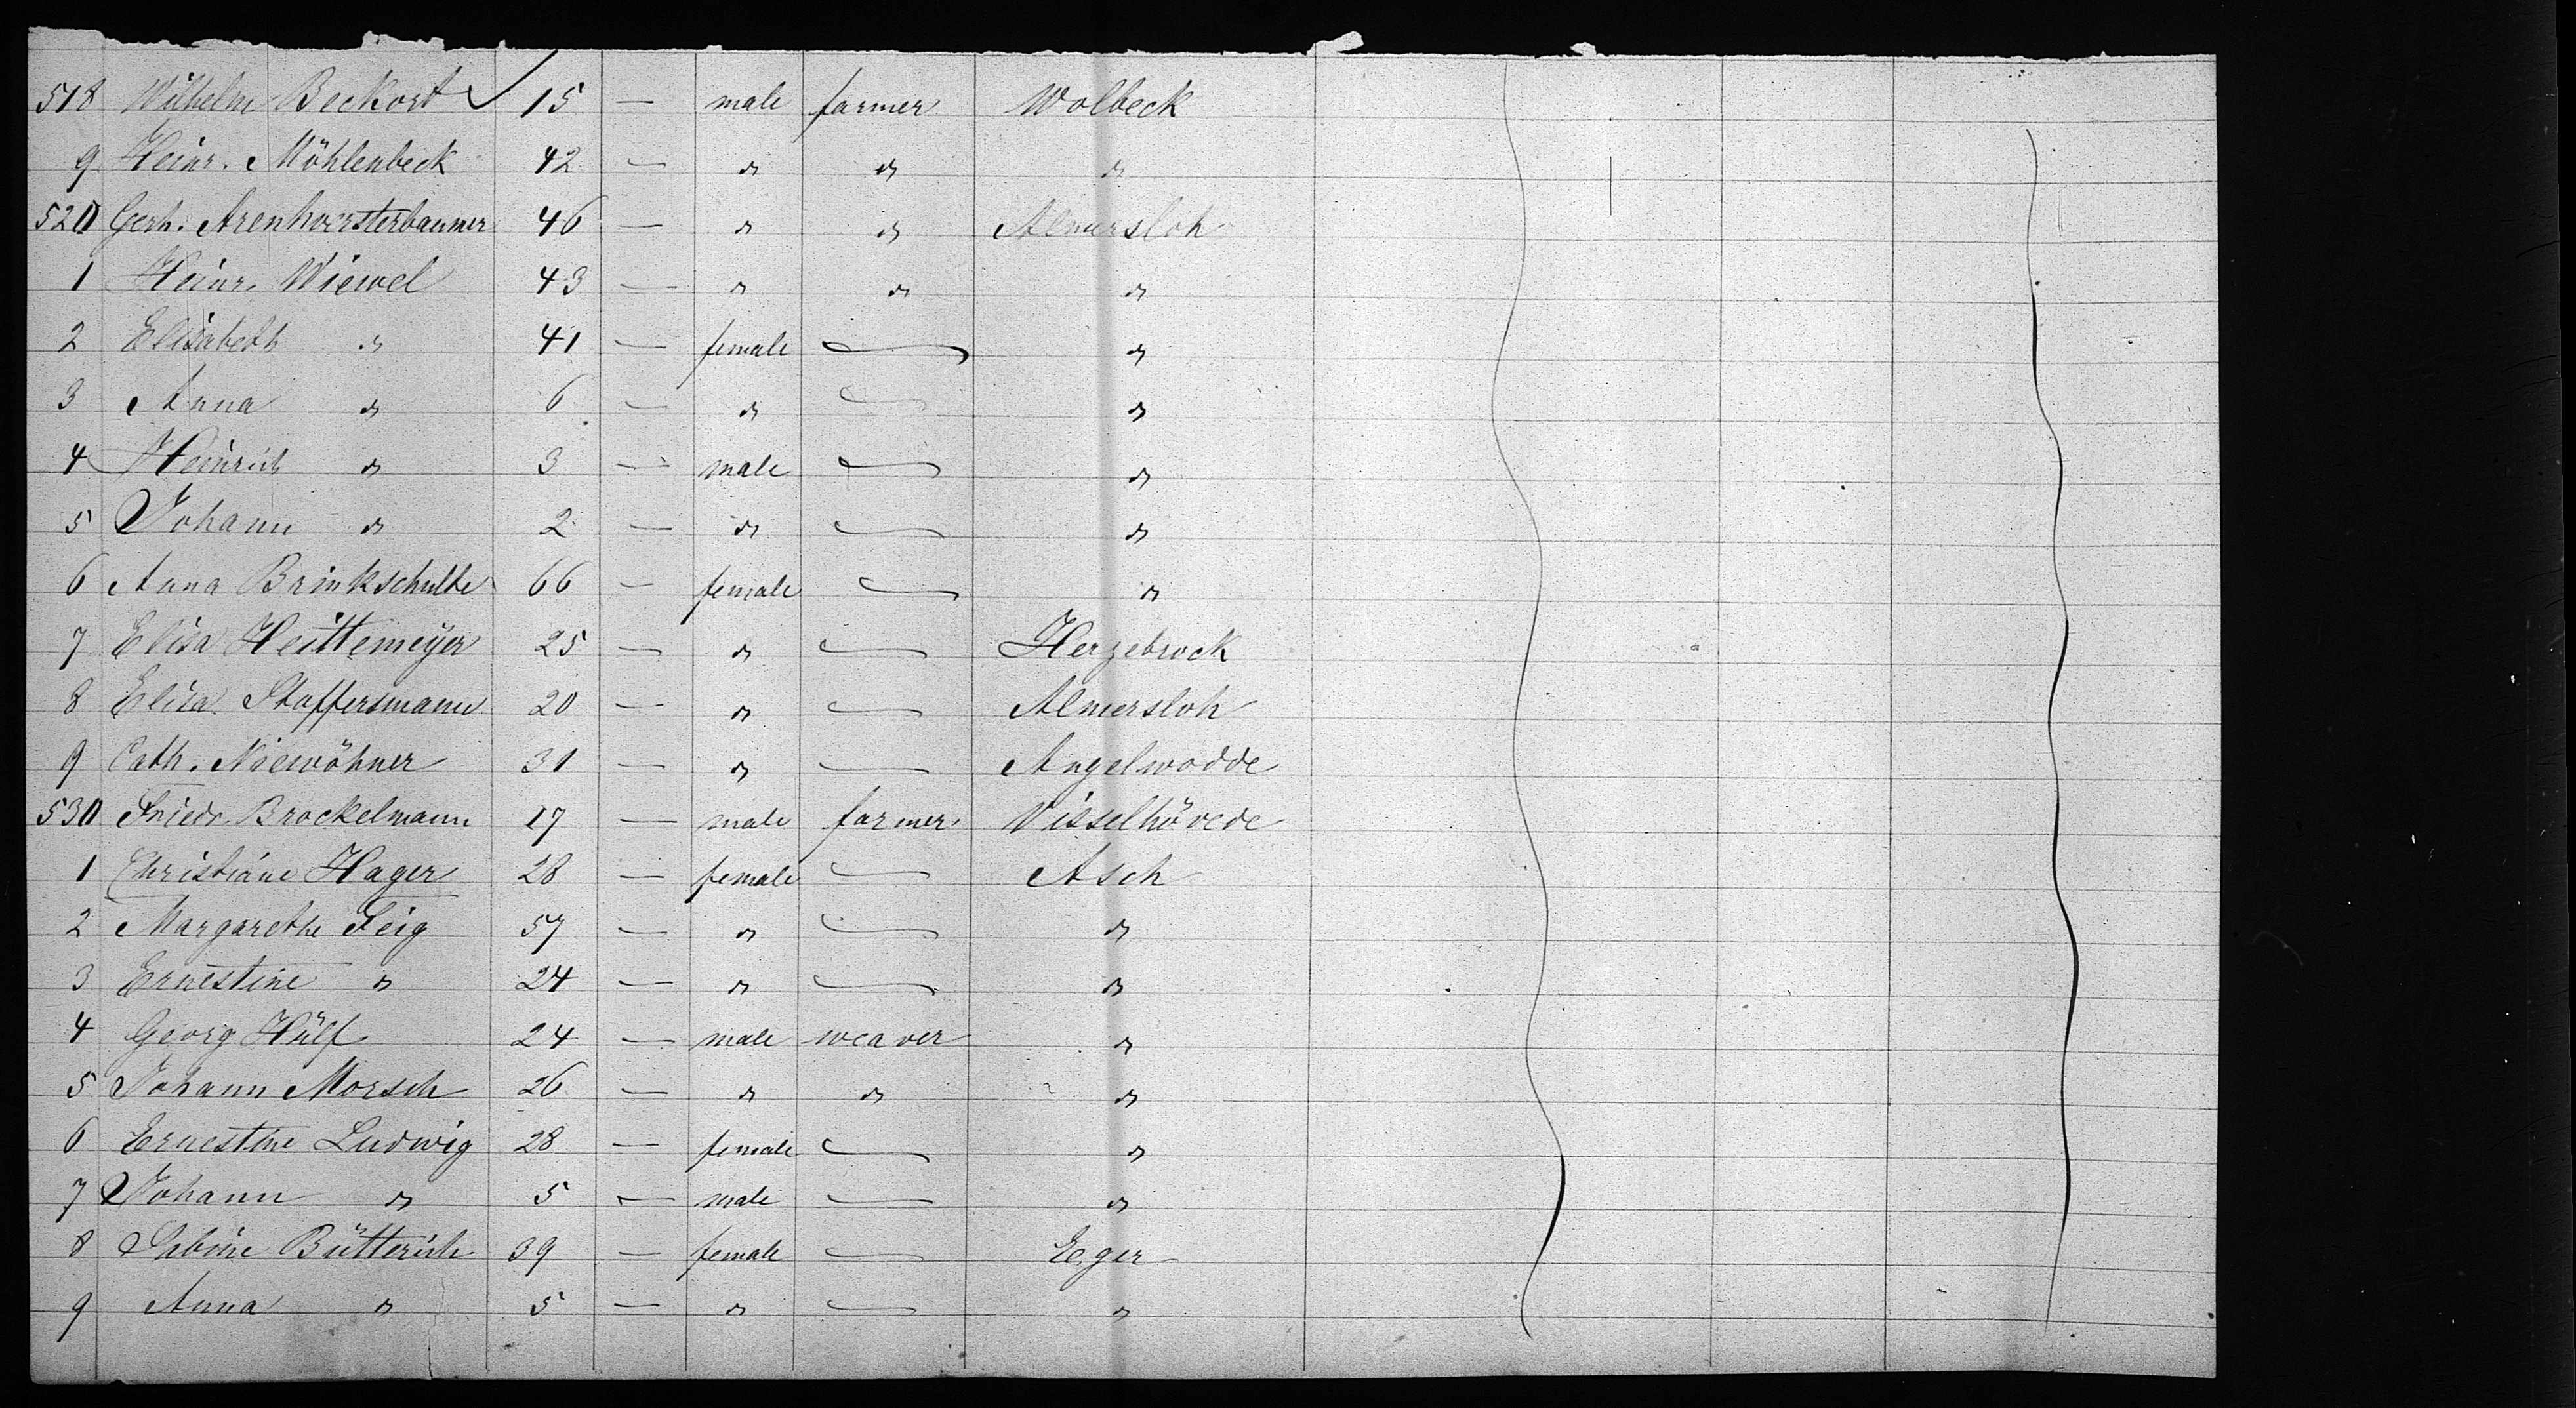 518 Wilhelm Beckort 15 — male farmer Wolbeck
9 Heinr. Möhlenbeck 42 — " " "
520 Gerh. Arenhoersterbaumer 46 — " " Almersloh
1 Heinr. Wiewel 43 — " " "
2 Elisabeth " 41 — female — "
3 Anna " 6 — " — "
4 Heinrich " 3 — male — "
5 Johann " 2 — " — "
6 Anna Brinkschulte 66 — female — "
7 Elisa Heittemeÿer 25 — " — Herzebrock
8 Elisa Staffersmann 20 — " — Almersloh
9 Cath. Niewöhner 31 — " — Angelmodde
530 Friedr. Brockelmann 17 — male farmer Visselhövede
1 Christiane Hager 28 — female — Asch
2 Margarethe Feig 57 — " — "
3 Ernestine " 24 — " — "
4 Georg Hülf 24 — male weaver "
5 Johann Morsch 26 — " " "
6 Ernestine Ludwig 28 — female — "
7 Johann " 5 — male — "
8 Sabine Bütterich 39 — female — Eger
9 Anna " 5 — " — "